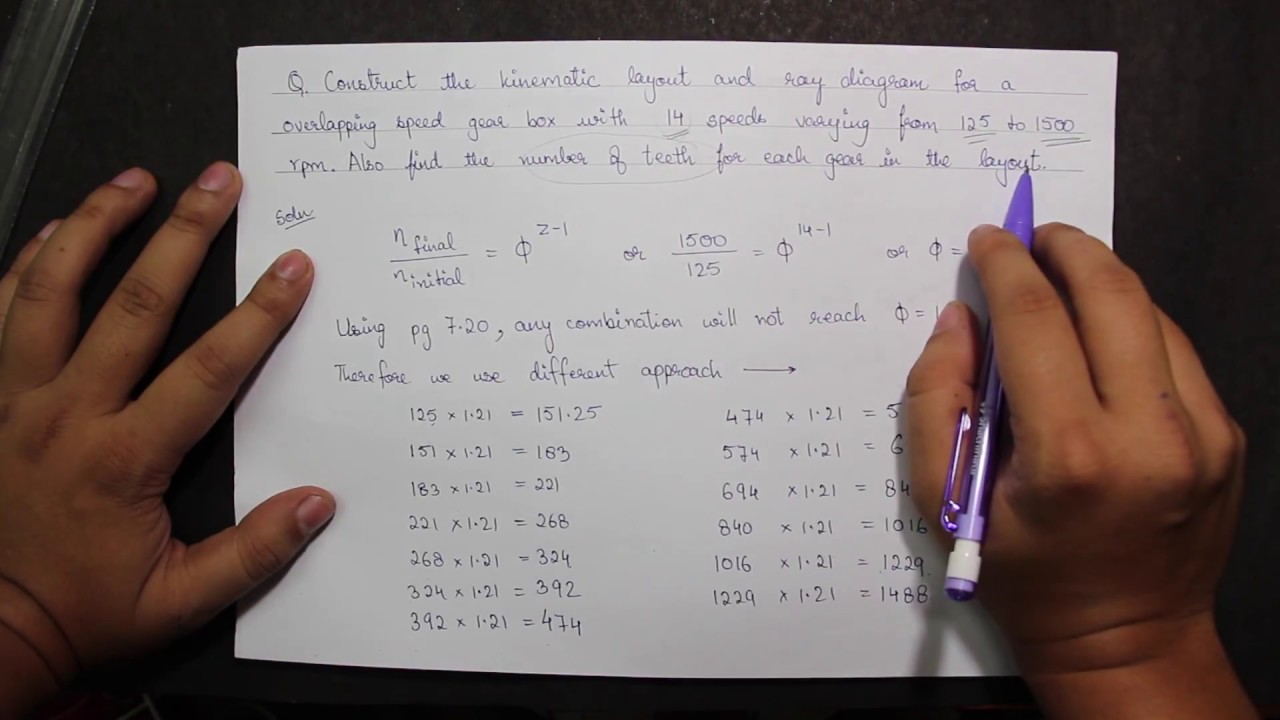 Q. Construct the kinematic layout and ray diagram for a
overlapping speed gear box with 14 speeds varying from 125 to 1500
rpm. Also find the number of teeth for each gear in the layout.
Soln
n final / n initial = ϕ^Z-1 or 1500 / 125 = ϕ^14-1 or ϕ =
Using pg 7.20, any combination will not reach ϕ = 1
Therefore we use different approach →
125 × 1.21 = 151.25
151 × 1.21 = 183
183 × 1.21 = 221
221 × 1.21 = 268
268 × 1.21 = 324
324 × 1.21 = 392
392 × 1.21 = 474
474 × 1.21 = 5
574 × 1.21 = 6
694 × 1.21 = 84
840 × 1.21 = 1016
1016 × 1.21 = 1229
1229 × 1.21 = 1488